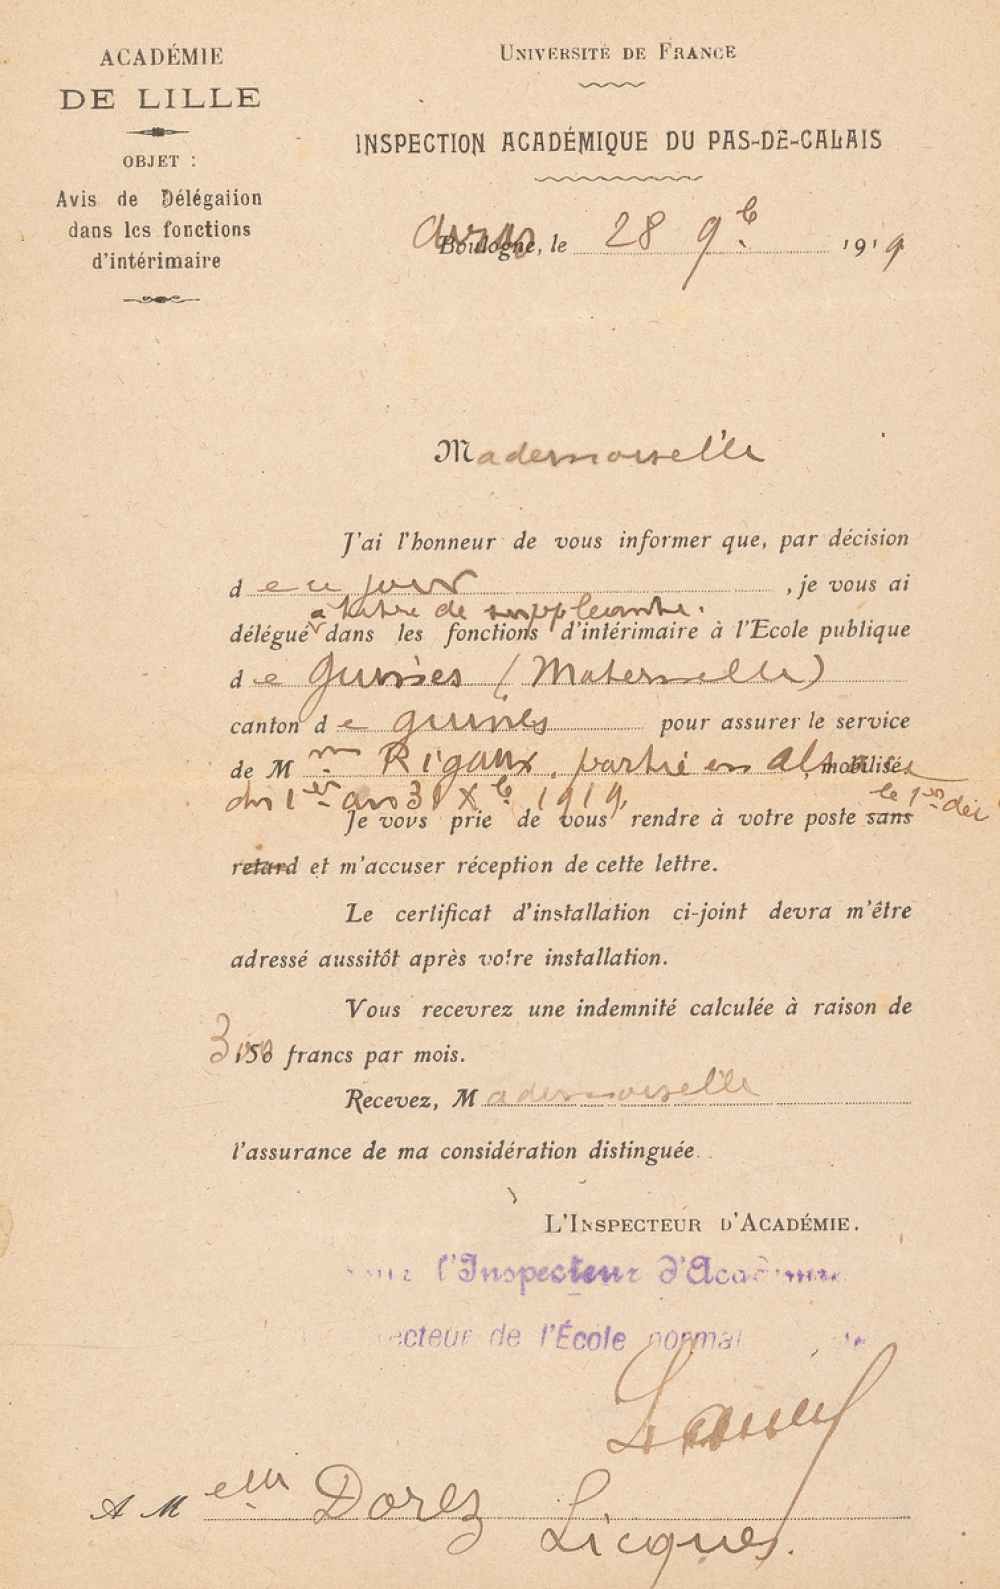 ACADÉMIE
DE LILLE
OBJET :
Avis de Délégation
dans les fonctions
d'intérimaire
UNIVERSITÉ DE FRANCE
INSPECTION ACADÉMIQUE DU PAS-DE-CALAIS
Arras Boulogne, le 28 9b 1919
Mademoiselle
J'ai l'honneur de vous informer que, par décision
de ce jour, je vous ai
à titre de suppléante.
délégué dans les fonctions d'intérimaire à l'Ecole publique
de Guînes (Maternelle)
canton de Guînes pour assurer le service
de Mme Rigaux, partie en Alsace, mobilisé
du 1er au 31 Xb 1919 le 1er déc
Je vous prie de vous rendre à votre poste sans
retard et m'accuser réception de cette lettre.
Le certificat d'installation ci-joint devra m'être
adressé aussitôt après votre installation.
Vous recevrez une indemnité calculée à raison de
300 150 francs par mois.
Recevez, Mademoiselle
l'assurance de ma considération distinguée.
L'INSPECTEUR D'ACADÉMIE.
l'Inspecteur d'Académie
de l'École
A Melle Dorez Licques.